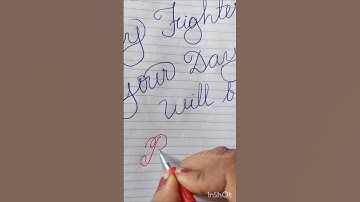 y Fighte
your Day
will b
P
InShOt